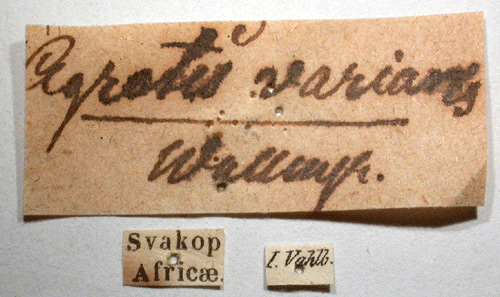 Agrotis varians
Wallengr.
Svakop
Africæ.
I. Vahlb.